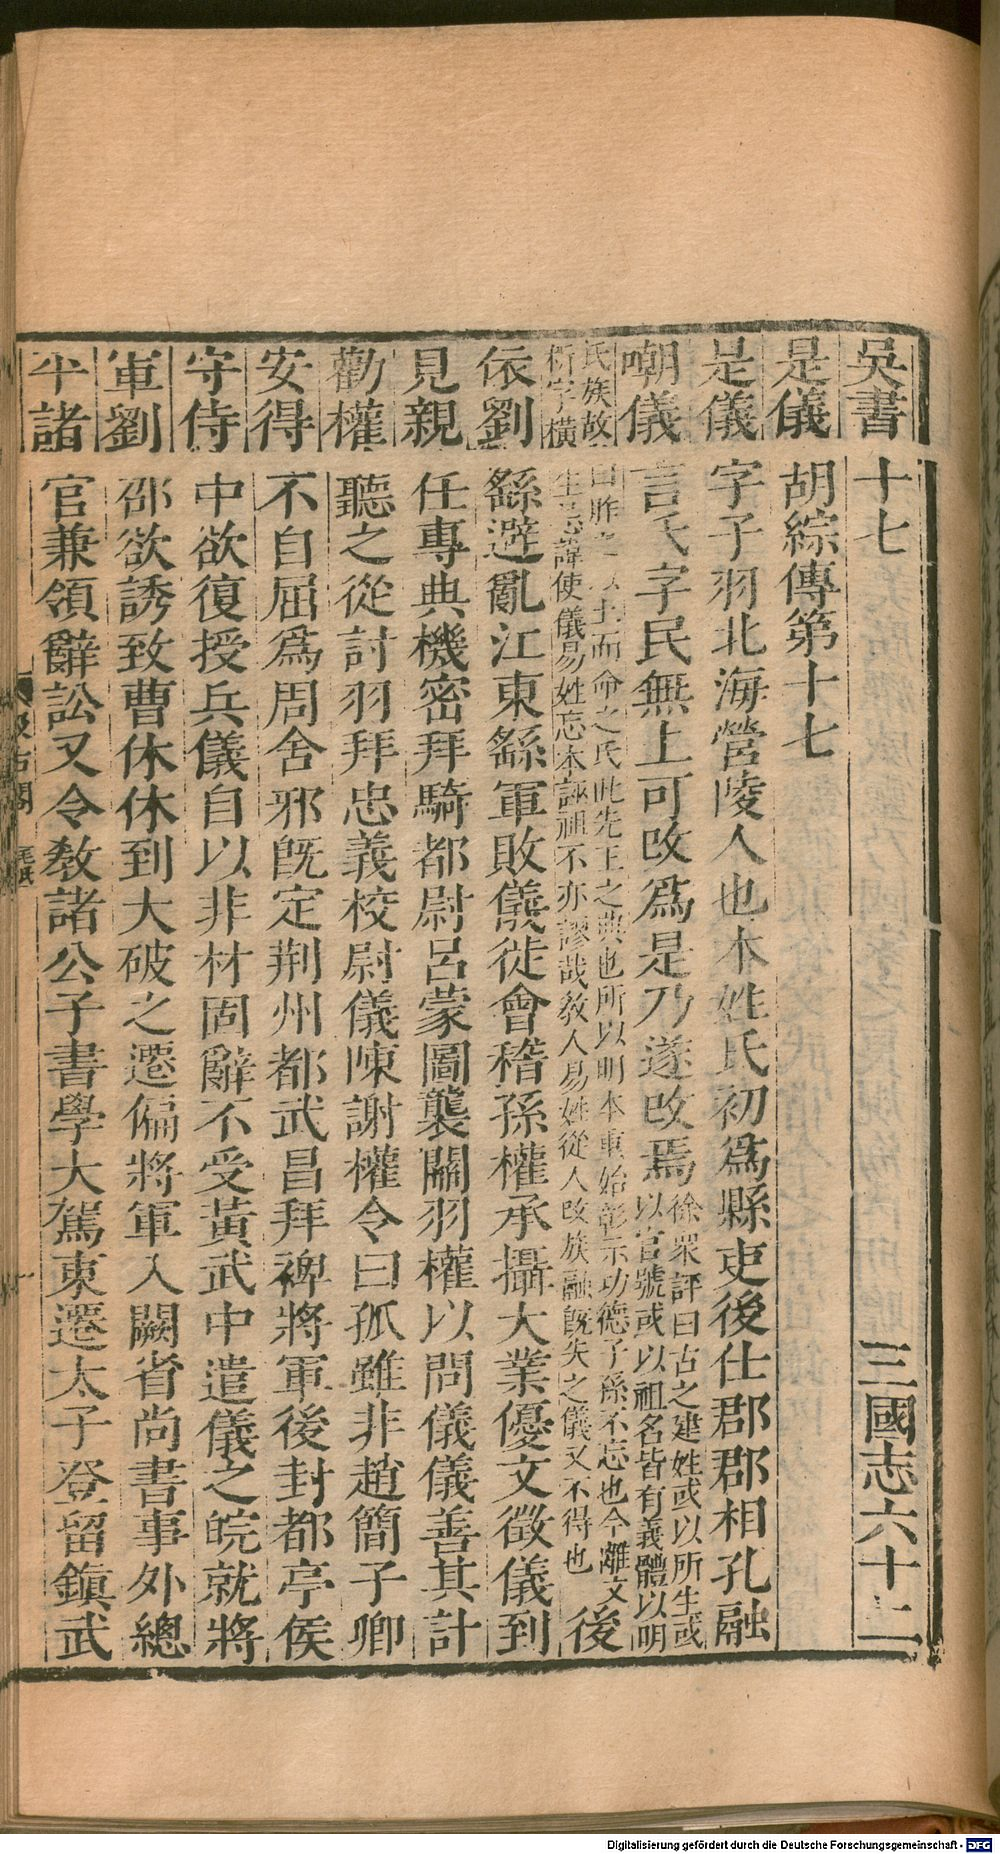 吳書十七 三國志六十二
是儀胡綜傳第十七
是儀字子羽北海營陵人也本姓氏初爲縣吏後仕郡郡相孔融
嘲儀言氏字民無上可改爲是乃遂改焉徐衆評曰古之建姓或以所生或
以官號或以祖名皆有義體以明
氏族故曰胙之以土而命之氏此先王之典也所以明本重始彰示功德子孫不忘也今離文
析字橫生忌諱使儀易姓忘本誣祖不亦謬哉敎人易姓從人改族融旣失之儀又不得也後
依劉繇避亂江東繇軍敗儀徙會稽孫權承攝大業優文徵儀到
見親任專典機密拜騎都尉呂蒙圖襲關羽權以問儀儀善其計
勸權聽之從討羽拜忠義校尉儀陳謝權令曰孤雖非趙簡子卿
安得不自屈爲周舍邪旣定荆州都武昌拜裨將軍後封都亭侯
守侍中欲復授兵儀自以非材固辭不受黃武中遣儀之皖就將
軍劉邵欲誘致曹休休到大破之遷偏將軍入闕省尚書事外總
平諸官兼領辭訟又令敎諸公子書學大駕東遷太子登留鎭武
汲古閣 毛氏
Digitalisierung gefördert durch die Deutsche Forschungsgemeinschaft - DFG